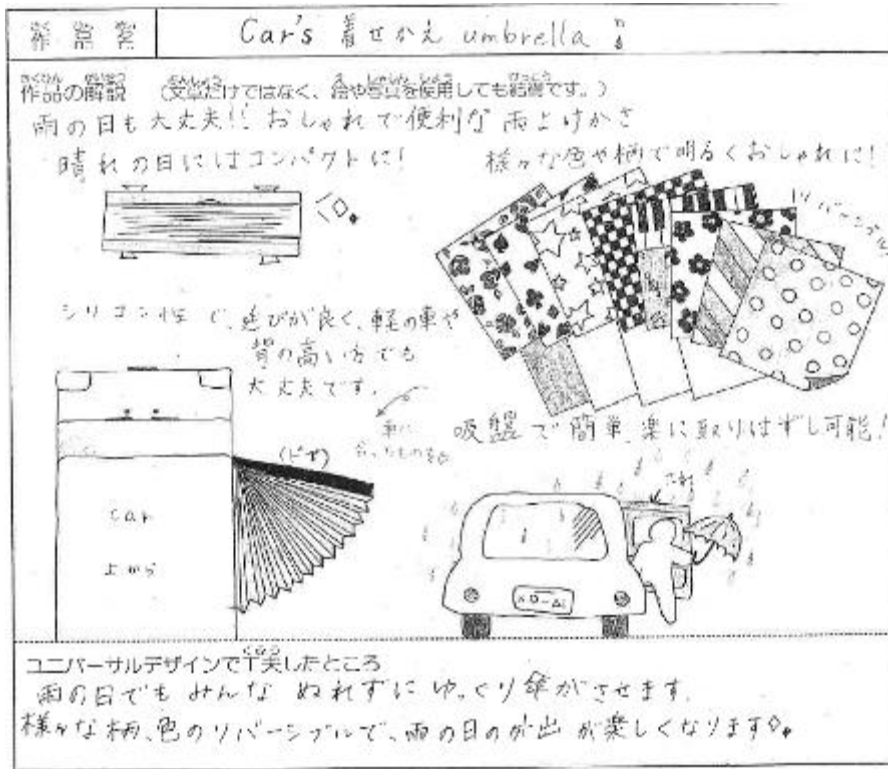 作品名 Car's 着せかえ umbrella
作品の解説 (文章だけではなく、絵や写真を使用しても結構です。)
雨の日も大丈夫!! おしゃれで便利な雨よけかさ
晴れの日にはコンパクトに!
様々な色や柄で明るくおしゃれに!
リバーシブル
シリコン性で、延びが良く、軽の車や
背の高い方でも
大丈夫です。
車に
合ったものを
吸盤で簡単、楽に取りはずし可能!
(ピザ)
car
上から
ユニバーサルデザインで工夫したところ
雨の日でもみんなぬれずにゆっくり傘がさせます。
様々な柄、色のリバーシブルで、雨の日のが出が楽しくなります